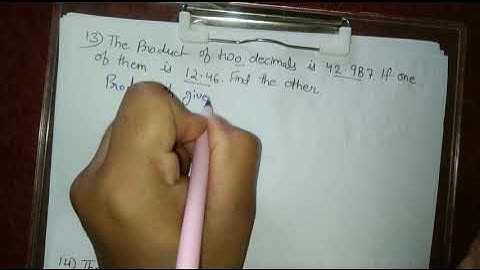 13) The Product of two decimals is 42.987. If one
of them is 12.46. Find the other.
give
14) The